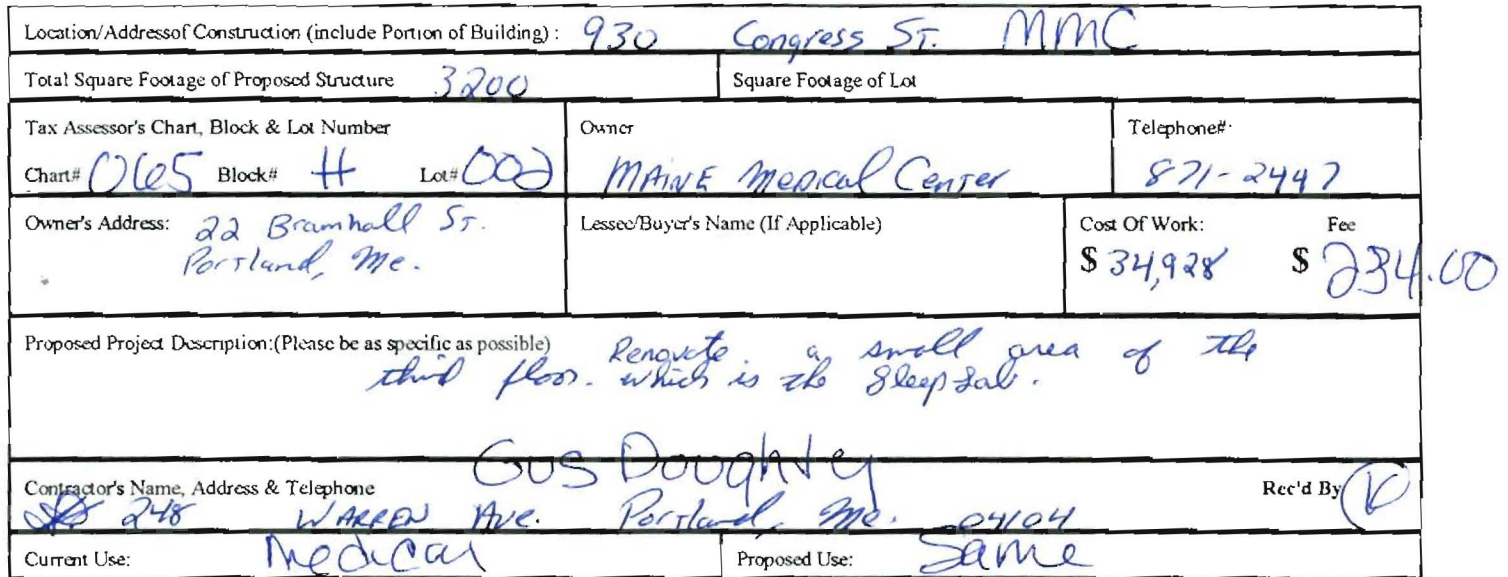 Location/Addressof Construction (include Portion of Building) : 930 Congress ST. MMC
Total Square Footage of Proposed Structure 3200 Square Footage of Lot
Tax Assessor's Chart, Block & Lot Number Owner Telephone#:
Chart# 065 Block# H Lot# 002 MAINE Medical Center 871-2447
Owner's Address: 22 Bramhall ST. Lessee/Buyer's Name (If Applicable) Cost Of Work: Fee
Portland, Me. $ 34,928 $ 234.00
Proposed Project Description:(Please be as specific as possible) Renovate a small area of the
third floor. which is the Sleep Lab.
Gus Doughtey
Contractor's Name, Address & Telephone Rec'd By K
248 WARREN Ave. Portland, Me. 04104
Current Use: Medical Proposed Use: Same